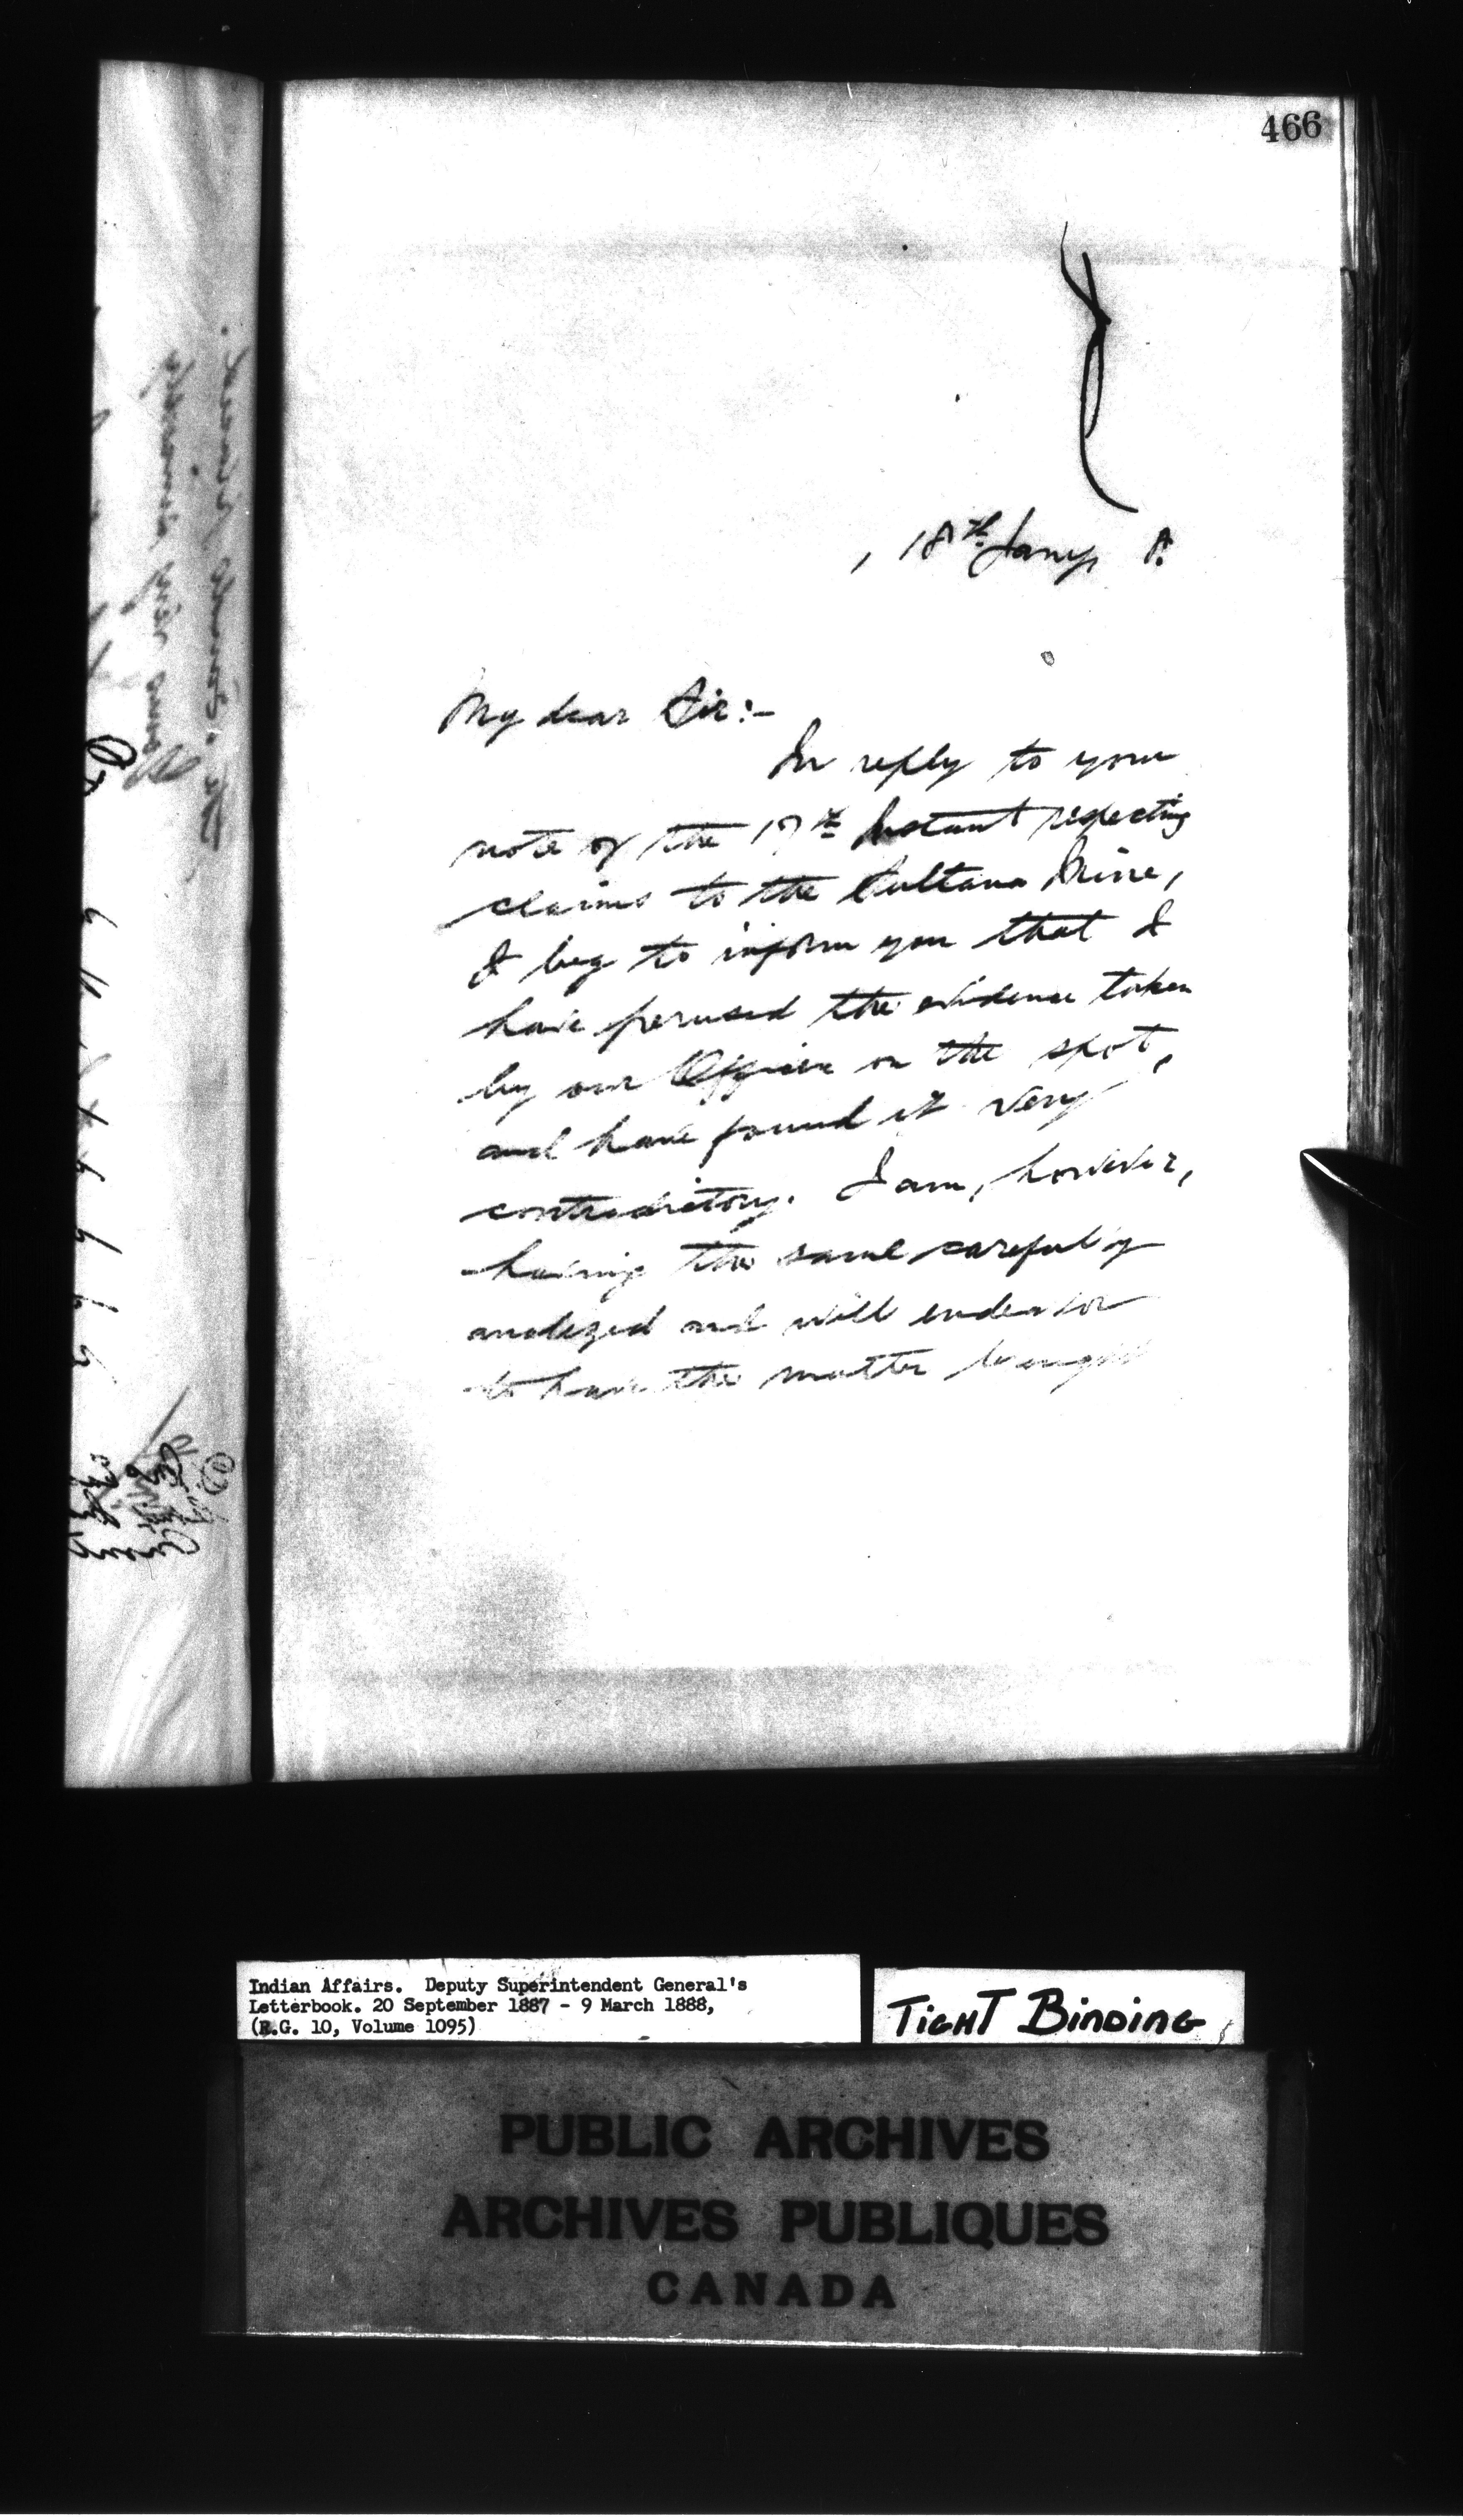 466
, 18th Jany, 8.
My dear Sir:-
In reply to your
note of the 17th Instant respecting
claims to the Sultana Mine,
I beg to inform you that I
have perused the evidence taken
by our Officer on the spot,
and have found it very
contradictory. I am, however,
having the same carefully
analized and will endeavor
to have the matter brought
Indian Affairs. Deputy Superintendent General's
Letterbook. 20 September 1887 - 9 March 1888,
(R.G. 10, Volume 1095)
TIGHT BINDING
PUBLIC ARCHIVES
ARCHIVES PUBLIQUES
CANADA